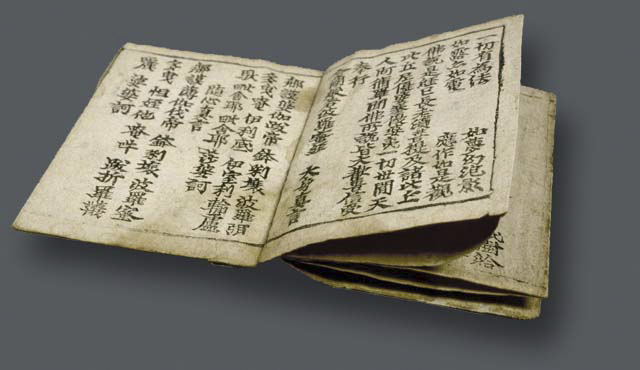 一切有為法　如夢幻泡影
如露亦如電　應作如是觀
佛說是經已長老須菩提及諸比丘
比丘尼優婆塞優婆夷一切世間天
人阿脩羅聞佛所說皆大歡喜信受
奉行
金剛般若波羅蜜經　大身真言
那謨婆伽跋帝　鉢剌壤　波羅弭
多曳唵　伊利底　伊室利　輸盧
馱毗舍耶　毗舍耶　莎婆訶
隨心真言
那謨薄伽伐帝　鉢剌壤　波羅蜜
多曳　怛姪他　唵吽　跋折羅
麗　娑婆訶
樹給